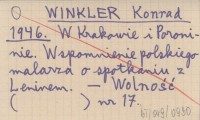 WINKLER Konrad
1946. W Krakowie i Poroni-
nie. Wspomnienie polskiego
malarza o spotkaniu z
Leninem. — Wolność
( ) nr 17.